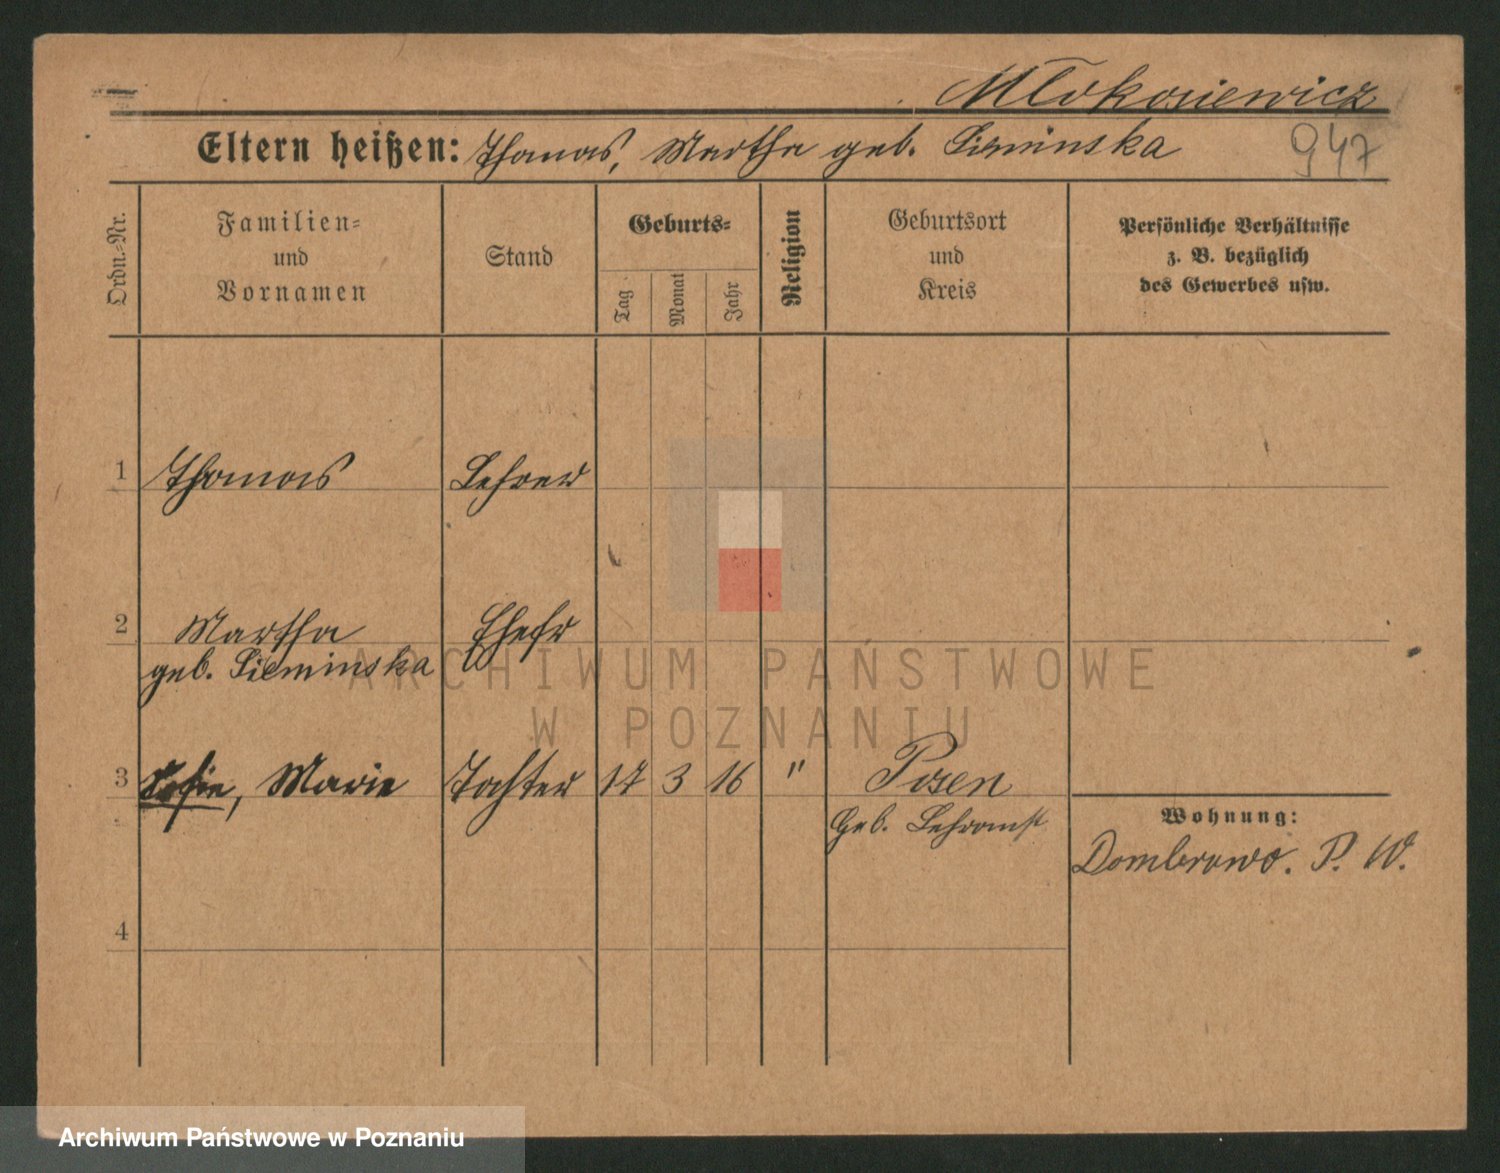 Młokosiewicz
Eltern heißen: Thomas, Martha geb. Sieminska
947
Ordn.-Nr.
Familien-
und
Vornamen
Stand
Geburts-
Tag
Monat
Jahr
Religion
Geburtsort
und
Kreis
Persönliche Verhältnisse
z. B. bezüglich
des Gewerbes usw.
1 Thomas Lehrer
2 Martha Ehefr
geb. Sieminska
ARCHIWUM PAŃSTWOWE
W POZNANIU
3 Sofie, Marie Tochter 17 3 16 " Posen
Geb. Lehranst
Wohnung:
Dombrowo. P. W.
4
Archiwum Państwowe w Poznaniu